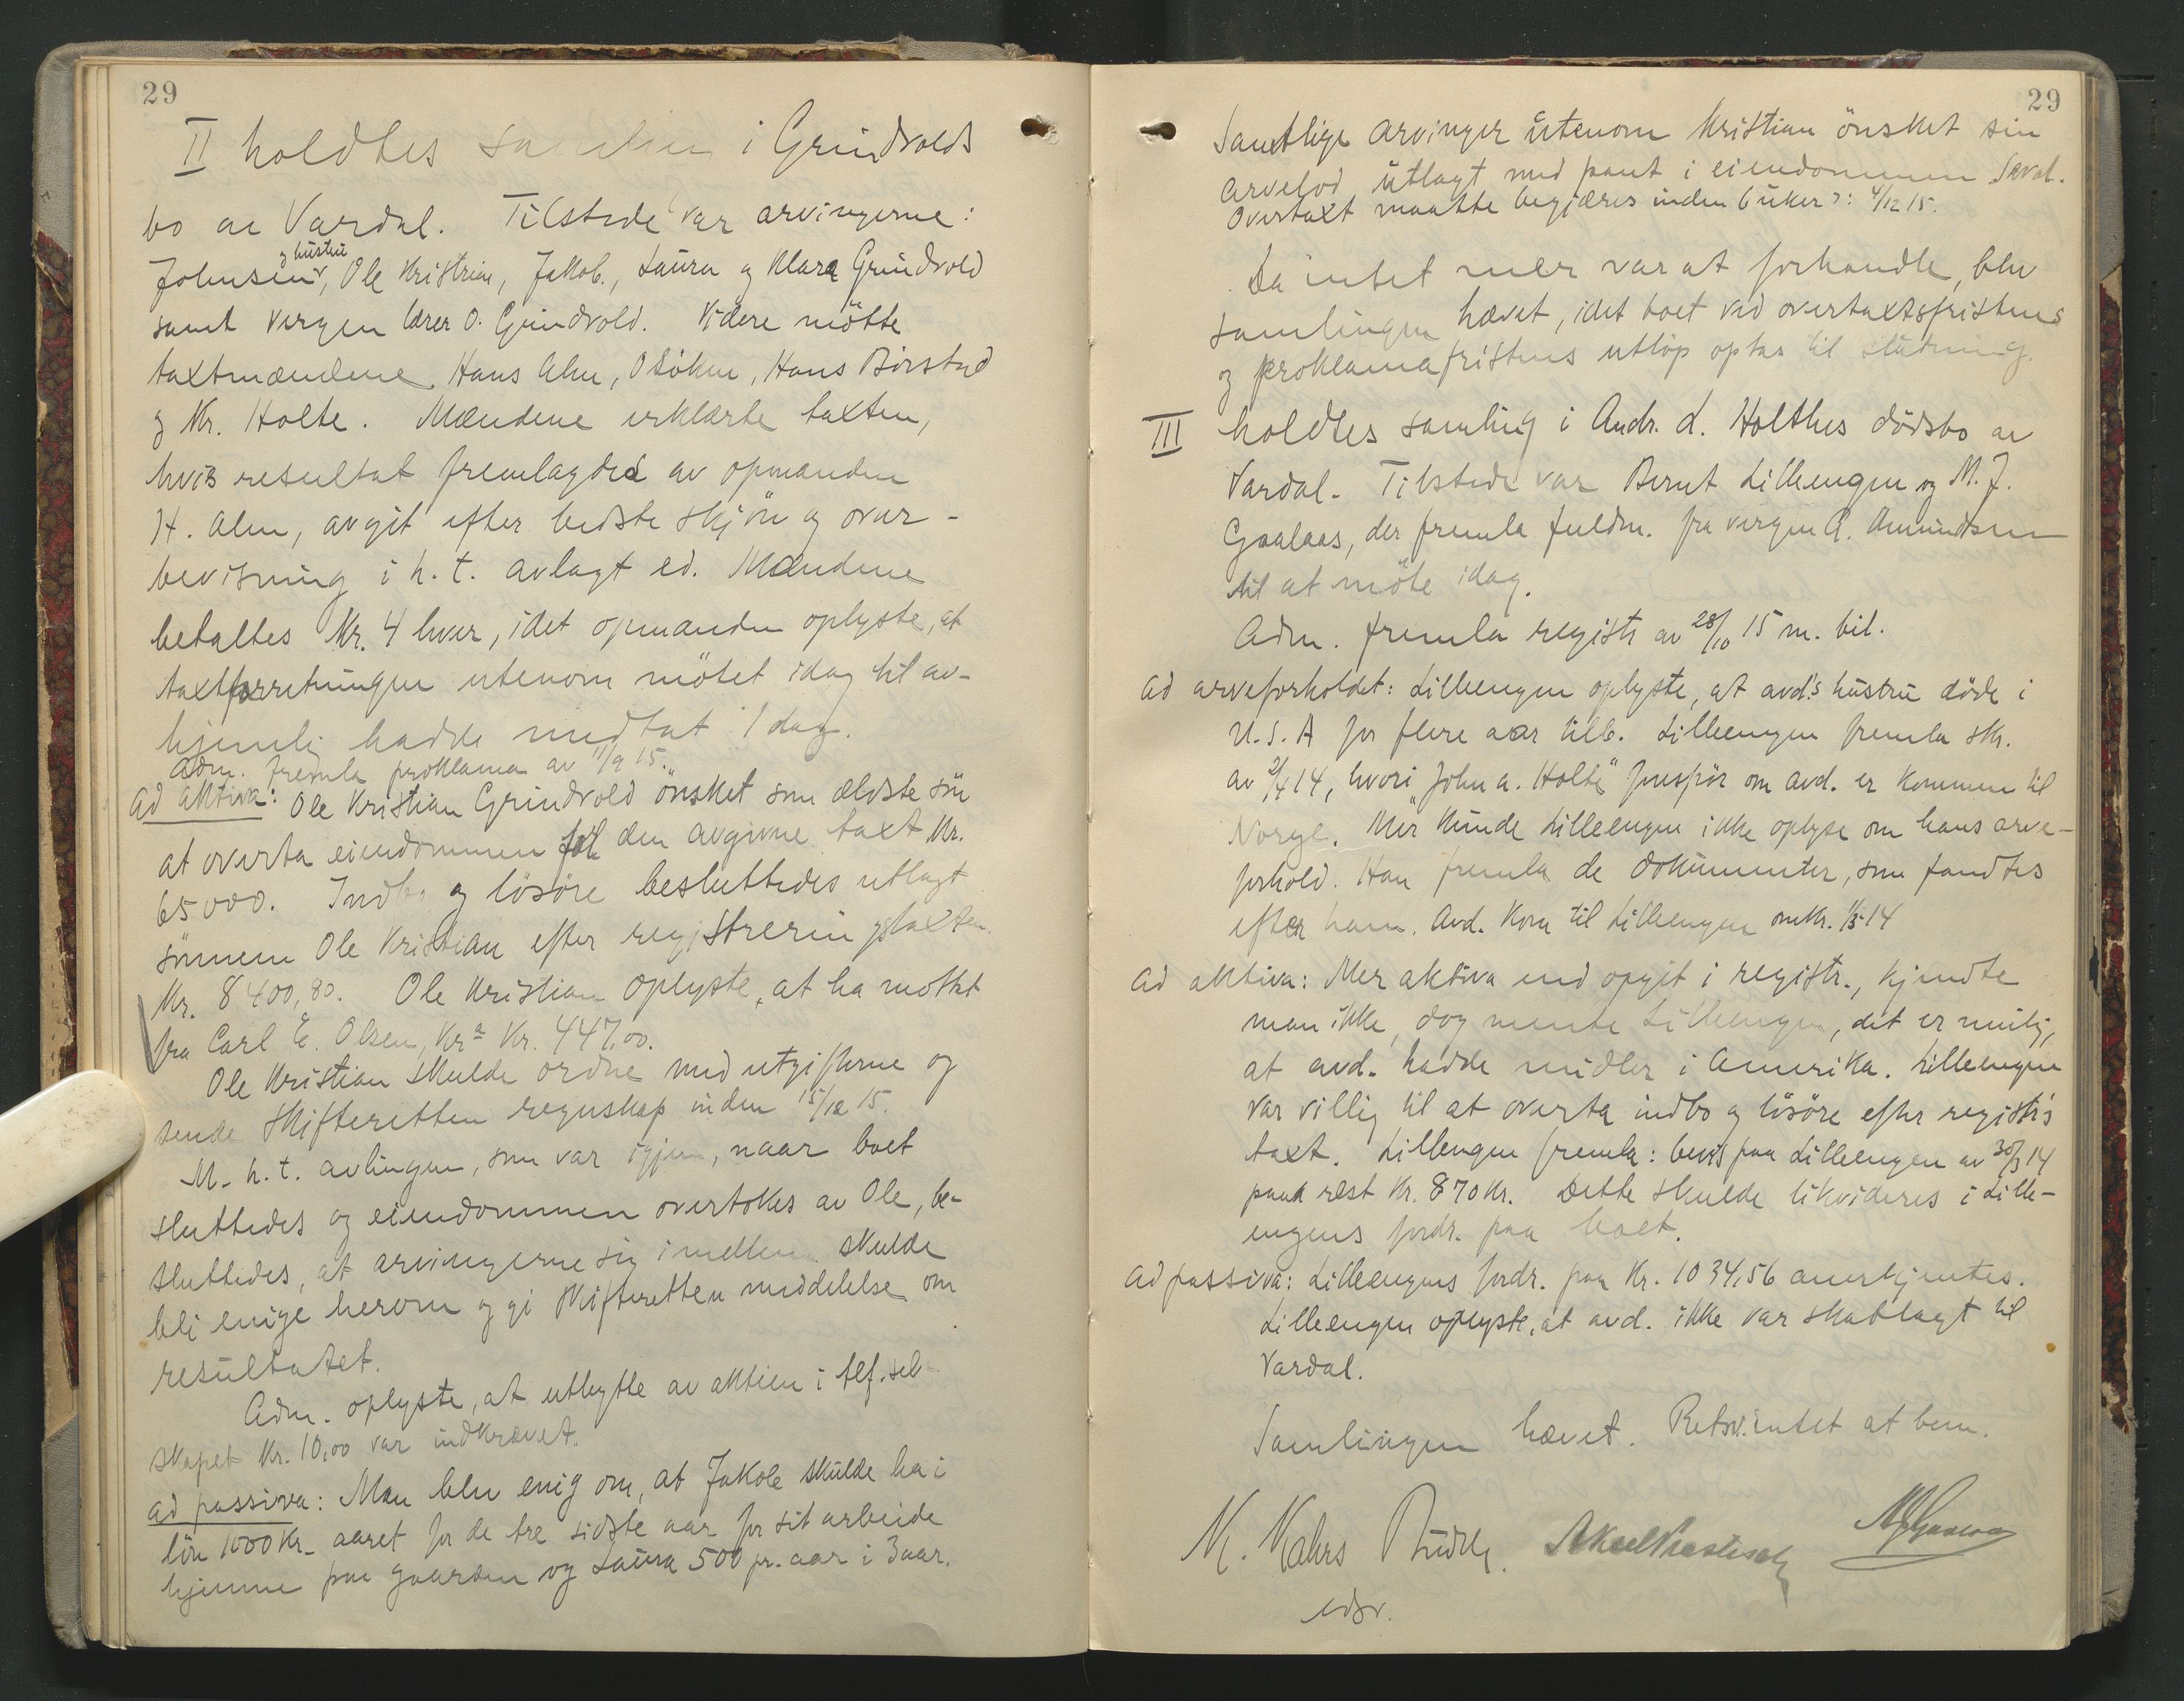 29
II holdtes samling i Grindvolds
bo av Vardal. Tilstede var arvingerne:
og hustru
Johnsen, Ole Kristian, Jakob, Laura og Klara Grindvold
samt vergen lærer O. Grindvold. Videre mötte
taxtmændene Hans Alm, O Söken, Hans Börstad
og Kr. Holte. Mændene erklærte taxten,
hvis resultat fremlagdes av opmanden
H. Alm, avgit efter bedste skjön og over-
bevisning i h. t. avlagt ed. Mændene
betaltes Kr. 4 hver, idet opmanden oplyste, at
taxtforretningen utenom mötet idag til av-
hjemling hadde medtat 1 dag.
Adm. fremla proklama av 11/9 15.
Ad aktiva: Ole Kristian Grindvold önsket som ældste sön
at overta eiendommen for den avgivne taxt Kr.
65000. Indbo og lösöre besluttedes utlagt
sönnen Ole Kristian efter registreringstaxten
Kr. 8400,80. Ole Kristian oplyste, at ha mottat
fra Carl E. Olsen, Kra Kr. 447,00.
Ole Kristian skulde ordne med utgifterne og
sende skifteretten regnskap inden 15/12 15.
M. h. t. avlingen, som var igjen, naar boet
sluttedes og eiendommen overtokes av Ole, be-
sluttedes, at arvingerne sig imellem skulde
bli enige herom og gi skifteretten meddelelse om
resultatet.
Adm. oplyste, at utbytte av aktien i telf. sel-
skapet Kr. 10,00 var indkrævet.
Ad passiva: Man blev enig om, at Jakob skulde ha i
lön 1000 Kr. aaret for de tre sidste aar for sit arbeide
hjemme paa gaarden og Laura 500 pr. aar i 3 aar.
29
Samtlige arvinger utenom Kristian önsket sin
arvelod utlagt med pant i eiendommen
Overtaxt maatte begjæres inden 6 uker ɔ: 4/12 15.
Da intet mer var at forhandle, blev
samlingen hævet, idet boet ved overtaxtsfristens
og proklamafristens utlöp optas til slutning.
III holdtes samling i Andr. L. Holthes dödsbo av
Vardal. Tilstede var Bernt Lilleengen og M. J.
Gaalaas, der fremla fuldm. fra vergen A. Amundsen
til at möte idag.
Adm. fremla registr av 28/10 15 m. bil.
Ad arveforholdet: Lilleengen oplyste, at avd's hustru döde i
U. S. A for flere aar tilb. Lilleengen fremla skr.
av 14, hvori "John A. Holte" forespör om avd. er kommen til
Norge. Mer kunde Lilleengen ikke oplyse om hans arve-
forhold. Han fremla de dokumenter, som fandtes
efter ham. Avd. kom til Lilleengen omkr. 1/5 14
Ad aktiva: Mer aktiva end opgit i registr., kjendte
man ikke, dog mente Lilleengen, det er mulig,
at avd. hadde midler i Amerika. Lilleengen
var villig til at overta indbo og lösöre efter registr's
taxt. Lilleengen fremla: bevis paa Lilleengen av 30/3 14
paa rest Kr. 870 Kr. Dette skulde likvideres i Lille-
engens fordr. paa boet.
Ad passiva: Lilleengens fordr. paa Kr. 1034,56 anerkjentes.
Lilleengen oplyste, at avd. ikke var skatlagt til
Vardal.
Samlingen hævet. Retsv. intet at bem.
edsv.